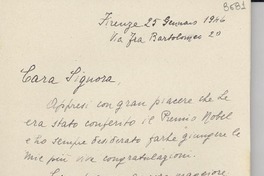 8681
Firenze 25 Gennaio 1946
Via Fra Bartolomeo 20
Cara Signora,
Appresi con gran piacere che Le
era stato conferito il Premio Nobel
e ho sempre desiderato farle giungere le
mie più vive congratulazioni.
maggiore